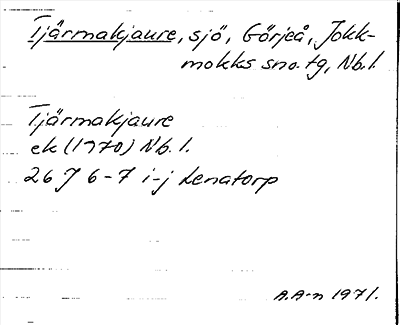 Tjärmakjaure, sjö, Görjeå, Jokk-
mokks sno.tg, Nb.l.
Tjärmakjaure
ek (1970) Nb.l.
26 J 6-7 i-j Lenatorp
A.A-n 1971.